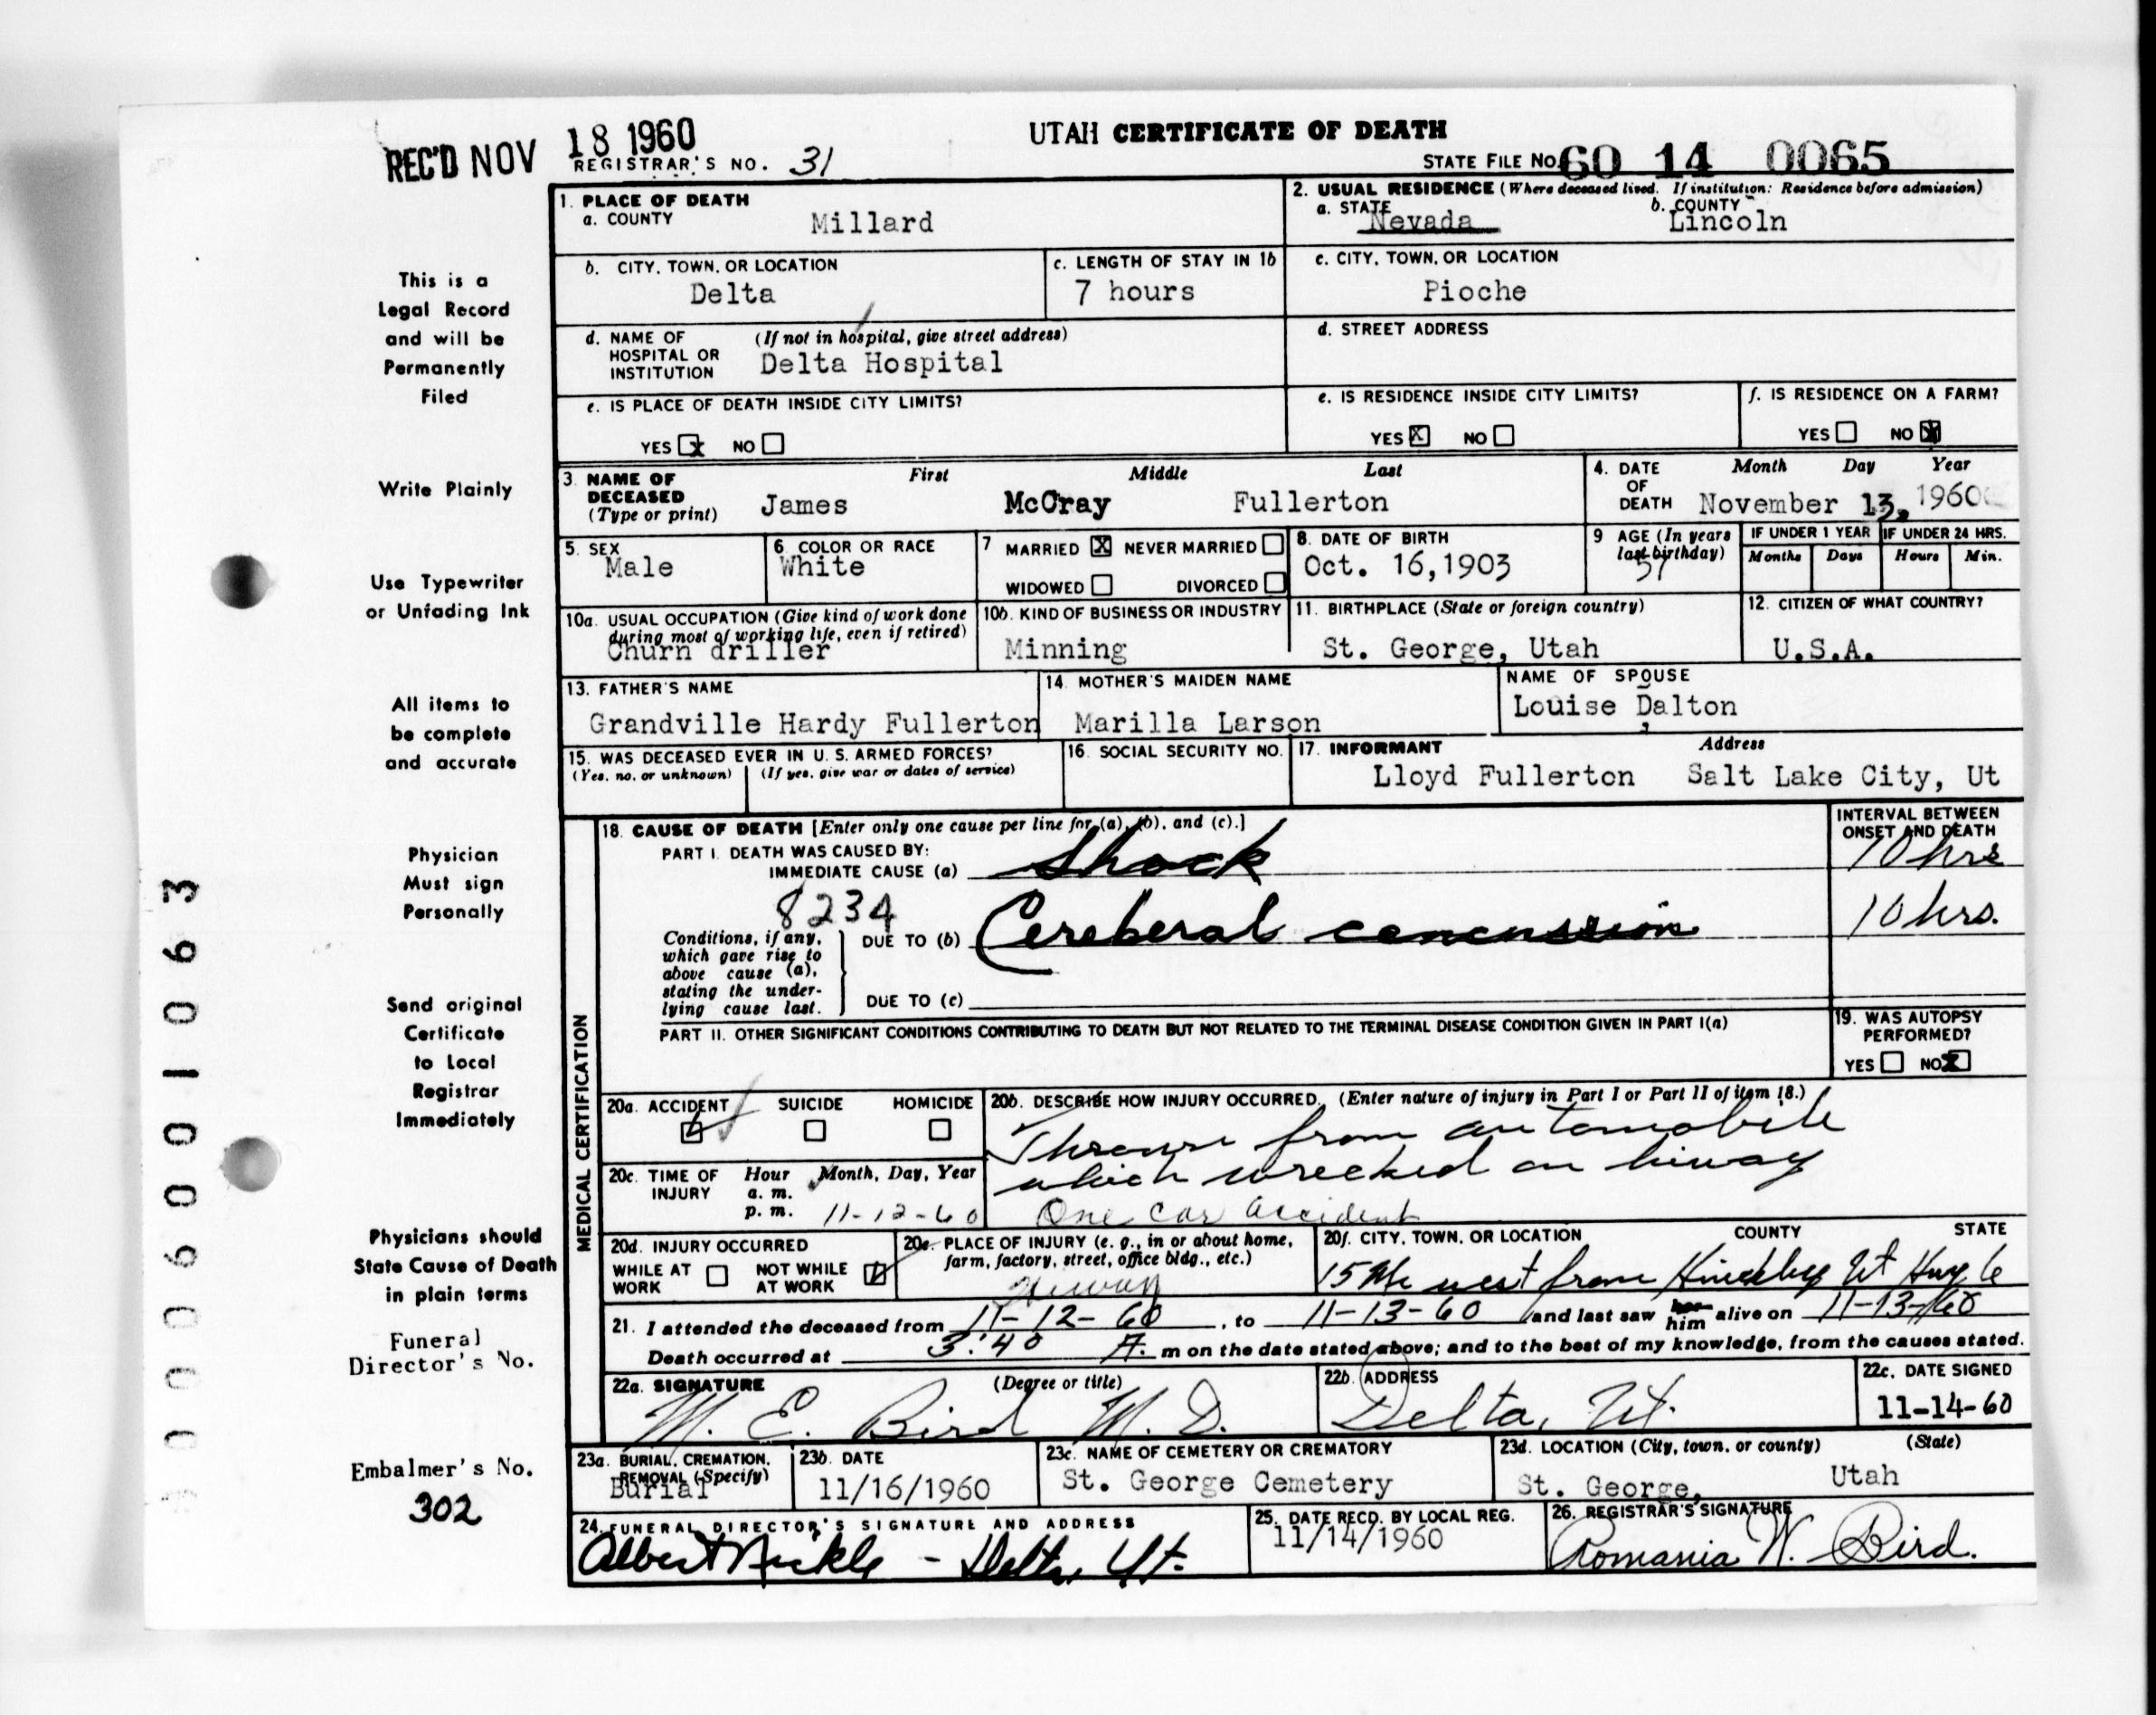 REC'D NOV 18 1960
UTAH CERTIFICATE OF DEATH
REGISTRAR'S NO. 31
STATE FILE NO. 60 14 0065
This is a
Legal Record
and will be
Permanently
Filed
Write Plainly
Use Typewriter
or Unfading Ink
All items to
be complete
and accurate
Physician
Must sign
Personally
Send original
Certificate
to Local
Registrar
Immediately
Physicians should
State Cause of Death
in plain terms
Funeral
Director's No.
Embalmer's No.
302
1. PLACE OF DEATH
a. COUNTY Millard
2. USUAL RESIDENCE (Where deceased lived. If institution: Residence before admission)
a. STATE Nevada b. COUNTY Lincoln
b. CITY, TOWN, OR LOCATION Delta
c. LENGTH OF STAY IN 1b 7 hours
c. CITY, TOWN, OR LOCATION Pioche
d. NAME OF HOSPITAL OR INSTITUTION (If not in hospital, give street address) Delta Hospital
d. STREET ADDRESS
e. IS PLACE OF DEATH INSIDE CITY LIMITS?
YES X NO
e. IS RESIDENCE INSIDE CITY LIMITS?
YES X NO
f. IS RESIDENCE ON A FARM?
YES NO X
3. NAME OF DECEASED (Type or print) First Middle Last
James McCray Fullerton
4. DATE OF DEATH Month Day Year
November 13, 1960
5. SEX Male
6. COLOR OR RACE White
7 MARRIED X NEVER MARRIED
WIDOWED DIVORCED
8. DATE OF BIRTH Oct. 16,1903
9 AGE (In years last birthday) 57
IF UNDER 1 YEAR Months Days
IF UNDER 24 HRS. Hours Min.
10a. USUAL OCCUPATION (Give kind of work done during most of working life, even if retired)
Churn driller
10b. KIND OF BUSINESS OR INDUSTRY
Minning
11. BIRTHPLACE (State or foreign country)
St. George, Utah
12. CITIZEN OF WHAT COUNTRY?
U.S.A.
13. FATHER'S NAME
Grandville Hardy Fullerton
14. MOTHER'S MAIDEN NAME
Marilla Larson
NAME OF SPOUSE
Louise Dalton
15. WAS DECEASED EVER IN U. S. ARMED FORCES?
(Yes, no, or unknown) (If yes, give war or dates of service)
16. SOCIAL SECURITY NO.
17. INFORMANT Address
Lloyd Fullerton Salt Lake City, Ut
MEDICAL CERTIFICATION
18. CAUSE OF DEATH [Enter only one cause per line for (a), (b), and (c).]
INTERVAL BETWEEN ONSET AND DEATH
PART I. DEATH WAS CAUSED BY:
IMMEDIATE CAUSE (a) Shock 10 hrs
8234
Conditions, if any, which gave rise to above cause (a), stating the underlying cause last.
DUE TO (b) Cereberal concussion 10 hrs.
DUE TO (c)
PART II. OTHER SIGNIFICANT CONDITIONS CONTRIBUTING TO DEATH BUT NOT RELATED TO THE TERMINAL DISEASE CONDITION GIVEN IN PART I(a)
19. WAS AUTOPSY PERFORMED?
YES NO X
20a. ACCIDENT SUICIDE HOMICIDE
20b. DESCRIBE HOW INJURY OCCURRED. (Enter nature of injury in Part I or Part II of item 18.)
Thrown from automobile
which wrecked on hiway
One car accident
20c. TIME OF INJURY Hour a. m. p. m. Month, Day, Year
11-12-60
20d. INJURY OCCURRED
WHILE AT WORK NOT WHILE AT WORK
20e. PLACE OF INJURY (e. g., in or about home, farm, factory, street, office bldg., etc.)
Hiway
20f. CITY, TOWN, OR LOCATION COUNTY STATE
15 Mi west from Hinckley Ut Hwy 6
21. I attended the deceased from 11-12-60, to 11-13-60 and last saw her him alive on 11-13-60
Death occurred at 3:40 A. m on the date stated above; and to the best of my knowledge, from the causes stated.
22a. SIGNATURE (Degree or title)
M. E. Bird M. D.
22b. ADDRESS
Delta, Ut.
22c. DATE SIGNED
11-14-60
23a. BURIAL, CREMATION, REMOVAL (Specify)
Burial
23b. DATE
11/16/1960
23c. NAME OF CEMETERY OR CREMATORY
St. George Cemetery
23d. LOCATION (City, town, or county) (State)
St. George, Utah
24. FUNERAL DIRECTOR'S SIGNATURE AND ADDRESS
Albert Nickle - Delta, Ut.
25. DATE RECD. BY LOCAL REG.
11/14/1960
26. REGISTRAR'S SIGNATURE
Romania W. Bird.